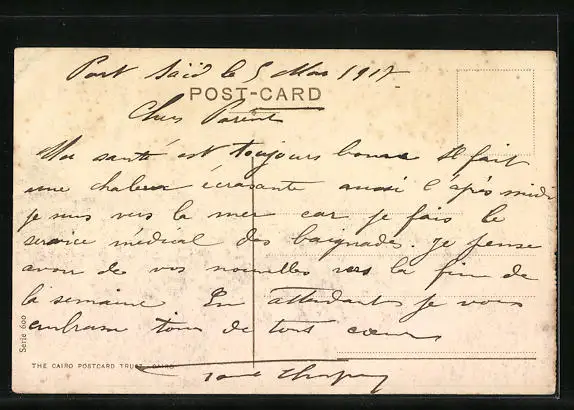 Port Saïd le 5 Mars 1917
POST-CARD
Chers Parents
Ma santé est toujours bonne Il fait
une chaleur écrasante aussi l'après midi
je vais vers la mer car je fais le
service médical des baignades. Je pense
avoir de vos nouvelles vers la fin de
la semaine En attendant je vous
embrasse tous de tout coeur
Serie 600
THE CAIRO POSTCARD TRUST, CAIRO